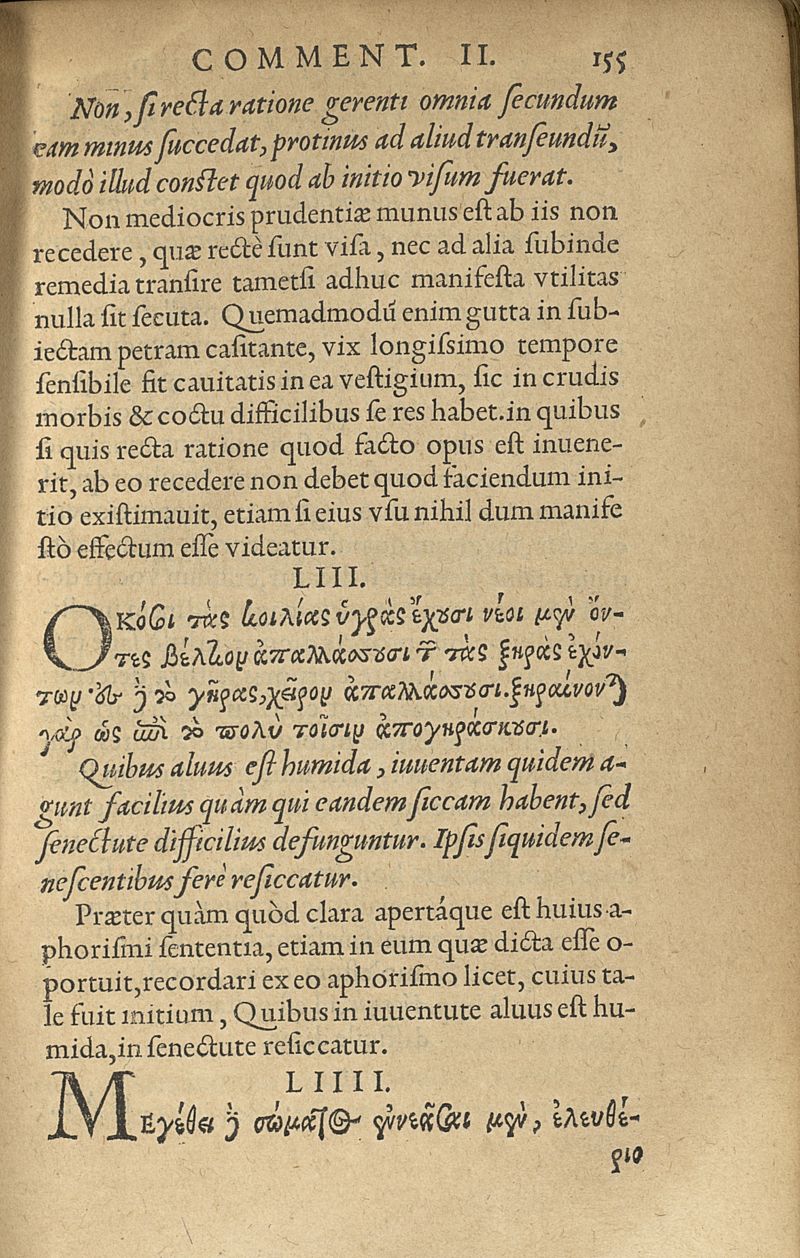 COMMENT. II. 155
Non, si recta ratione gerenti omnia secundum
eam minus succedat, protinus ad aliud transeundū,
modò illud constet quod ab initio visum fuerat.
Non mediocris prudentiæ munus est ab iis non
recedere, quæ rectè sunt visa, nec ad alia subinde
remedia transire tametsi adhuc manifesta vtilitas
nulla sit secuta. Quemadmodū enim gutta in sub-
iectam petram casitante, vix longissimo tempore
sensibile fit cauitatis in ea vestigium, sic in crudis
morbis & coctu difficilibus se res habet. in quibus
si quis recta ratione quod facto opus est inuene-
rit, ab eo recedere non debet quod faciendum ini-
tio existimauit, etiam si eius vsu nihil dum manife
stò effectum esse videatur.
LIII.
Οκόσοι τὰς κοιλίας ὑγρὰς ἔχουσι νέοι μὲν ὄν-
τες βέλτιον ἀπαλλάσσουσι τῶν τὰς ξηρὰς ἐχόν-
των· ἐς δὲ τὸ γῆρας, χεῖρον ἀπαλλάσσουσι. ξηραίνονται
γὰρ ὡς ἐπὶ τὸ πολὺ τοῖσιν ἀπογηράσκουσι.
Quibus aluus est humida, iuuentam quidem a-
gunt facilius quàm qui eandem siccam habent, sed
senectute difficilius defunguntur. Ipsis siquidem se-
nescentibus ferè resiccatur.
Præter quàm quòd clara apertáque est huius a-
phorismi sententia, etiam in eum quæ dicta esse o-
portuit, recordari ex eo aphorismo licet, cuius ta-
le fuit initium, Quibus in iuuentute aluus est hu-
mida, in senectute resiccatur.
LIIII.
Μεγέθει δὲ σώματος ἐννεᾶσαι μὲν, ἐλευθέ-
ριο